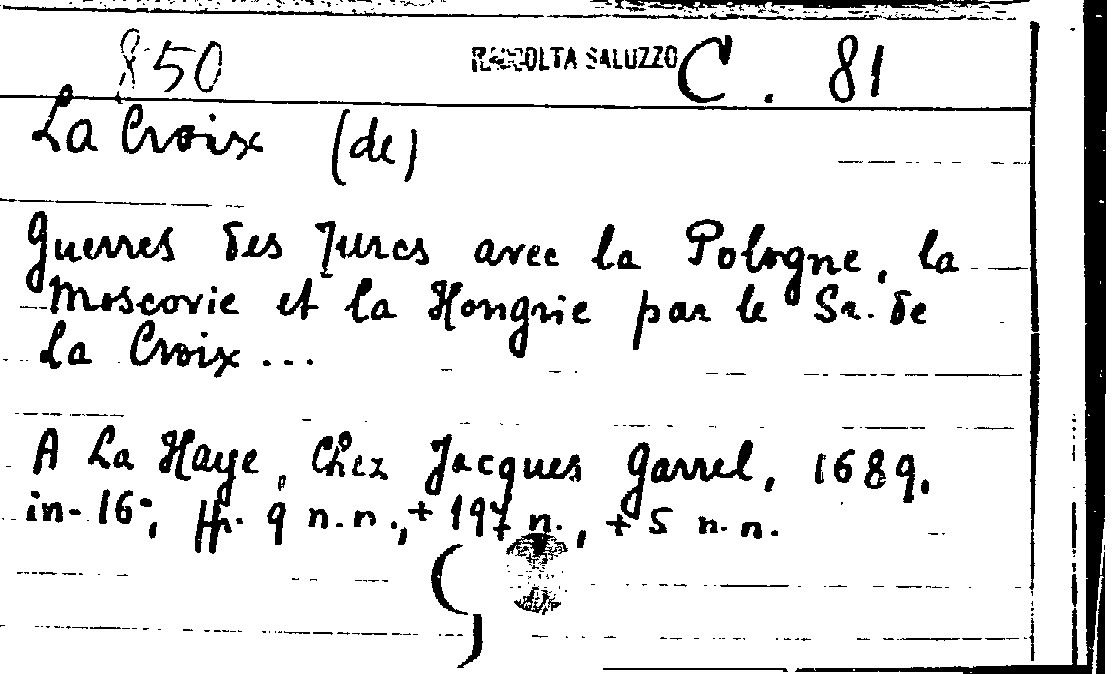 850 RACCOLTA SALUZZO C. 81
La Croix (de)
Guerres des Turcs avec la Pologne, la
Moscovie et la Hongrie par le Sr. de
La Croix...
A La Haye, Chez Jacques Garrel, 1689.
in-16°, ff. 9 n.n., + 197 n., + 5 n.n.